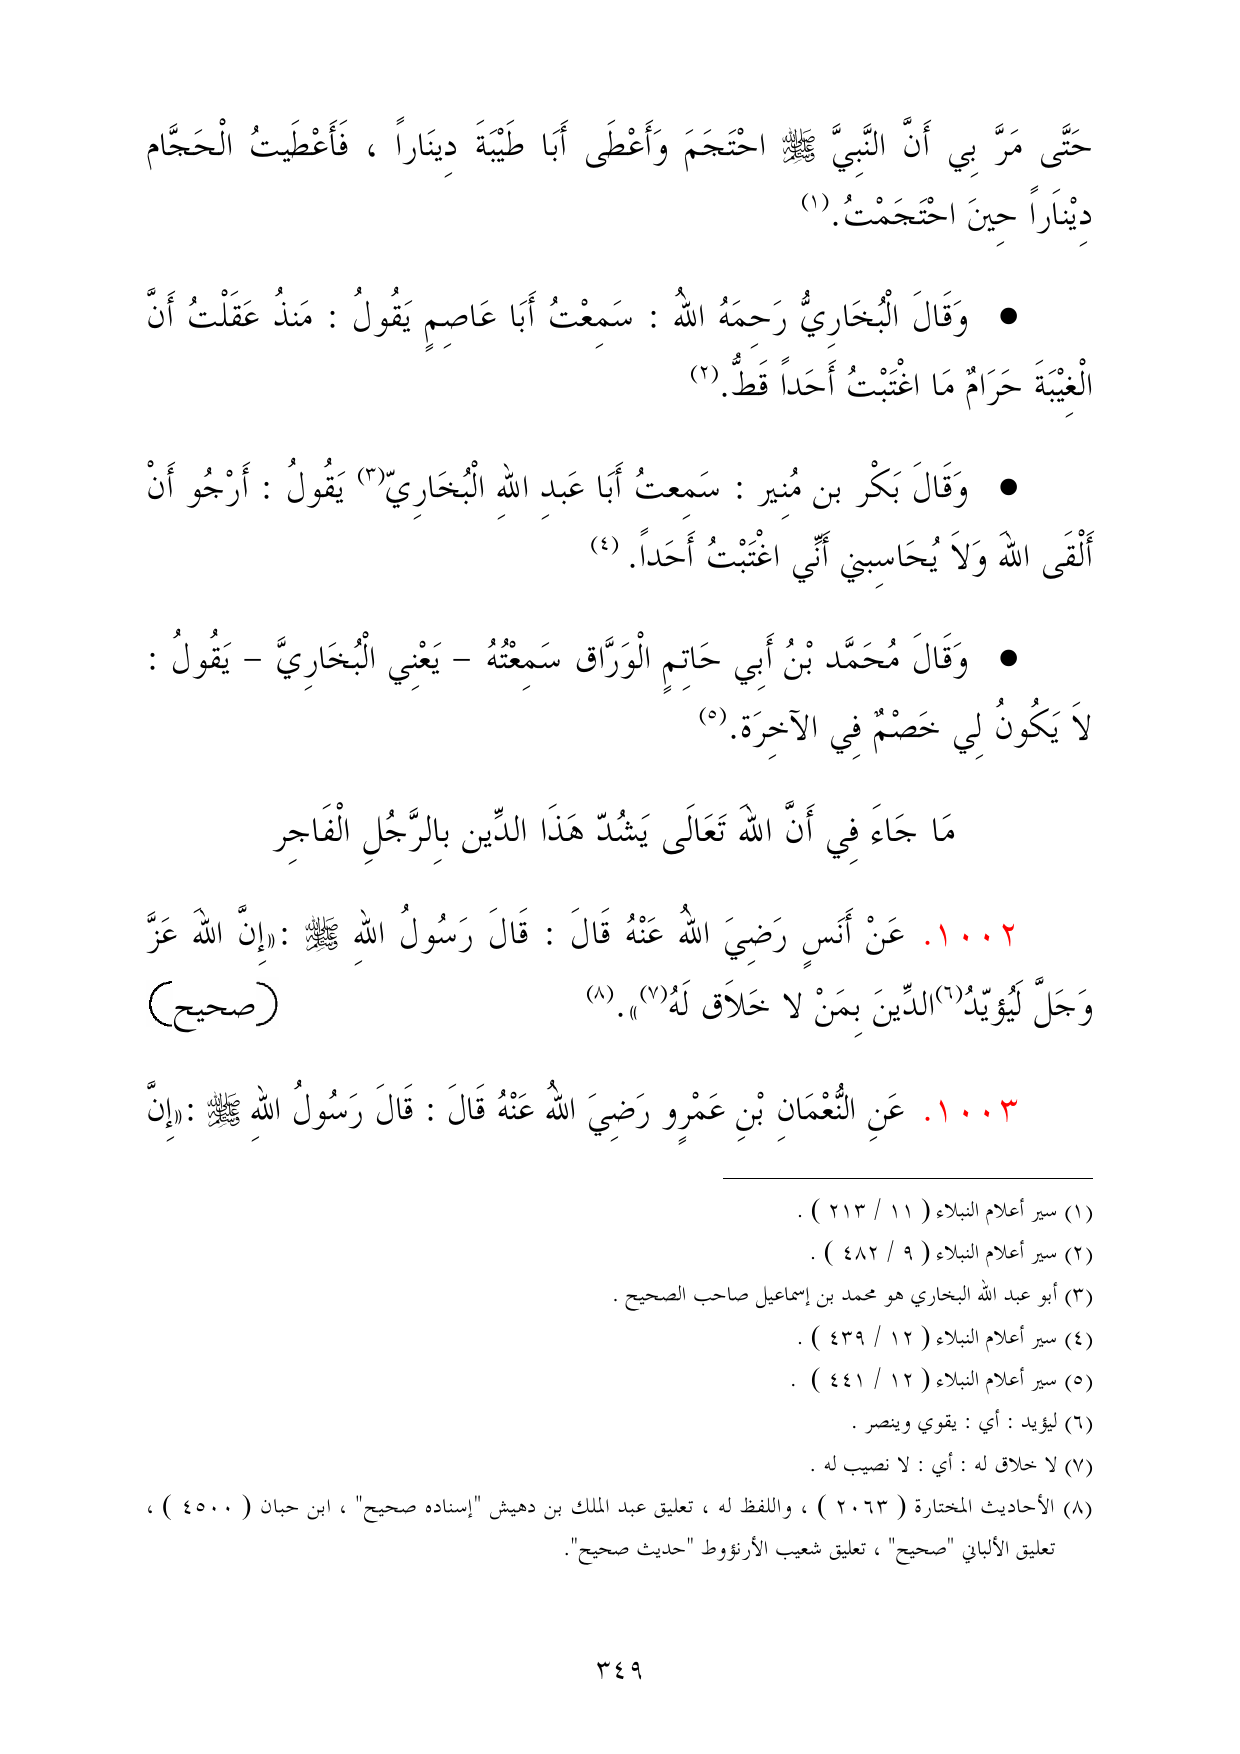 حَتَّى مَرَّ بِي أَنَّ النَّبِيَّ ﷺ احْتَجَمَ وَأَعْطَى أَبَا طَيْبَةَ دِينَاراً ، فَأَعْطَيتُ الْحَجَّام
دِيْنَاَراً حِينَ احْتَجَمْتُ.(١)
● وَقَالَ الْبُخَارِيُّ رَحِمَهُ اللهُ : سَمِعْتُ أَبَا عَاصِمٍ يَقُولُ : مَنذُ عَقَلْتُ أَنَّ
الْغِيْبَةَ حَرَامٌ مَا اغْتَبْتُ أَحَداً قَطُّ.(٢)
● وَقَالَ بَكْر بن مُنِير : سَمِعتُ أَبَا عَبدِ اللهِ الْبُخَارِيّ(٣) يَقُولُ : أَرْجُو أَنْ
أَلْقَى اللهَ وَلاَ يُحَاسِبنِي أَنِّي اغْتَبْتُ أَحَداً. (٤)
● وَقَالَ مُحَمَّد بْنُ أَبِي حَاتِمٍ الْوَرَّاق سَمِعْتُهُ – يَعْنِي الْبُخَارِيَّ – يَقُولُ :
لاَ يَكُونُ لِي خَصْمٌ فِي الآخِرَة.(٥)
مَا جَاءَ فِي أَنَّ اللهَ تَعَالَى يَشُدّ هَذَا الدِّين بِالرَّجُلِ الْفَاجِر
١٠٠٢. عَنْ أَنَسٍ رَضِيَ اللهُ عَنْهُ قَالَ : قَالَ رَسُولُ اللهِ ﷺ :«إِنَّ اللهَ عَزَّ
وَجَلَّ لَيُؤيّدُ(٦)الدِّينَ بِمَنْ لا خَلاَق لَهُ(٧)».(٨) (صحيح)
١٠٠٣. عَنِ النُّعْمَانِ بْنِ عَمْرٍو رَضِيَ اللهُ عَنْهُ قَالَ : قَالَ رَسُولُ اللهِ ﷺ :«إِنَّ
(١) سير أعلام النبلاء ( ١١ / ٢١٣ ) .
(٢) سير أعلام النبلاء ( ٩ / ٤٨٢ ) .
(٣) أبو عبد الله البخاري هو محمد بن إسماعيل صاحب الصحيح .
(٤) سير أعلام النبلاء ( ١٢ / ٤٣٩ ) .
(٥) سير أعلام النبلاء ( ١٢ / ٤٤١ ) .
(٦) ليؤيد : أي : يقوي وينصر .
(٧) لا خلاق له : أي : لا نصيب له .
(٨) الأحاديث المختارة ( ٢٠٦٣ ) ، واللفظ له ، تعليق عبد الملك بن دهيش "إسناده صحيح" ، ابن حبان ( ٤٥٠٠ ) ،
تعليق الألباني "صحيح" ، تعليق شعيب الأرنؤوط "حديث صحيح".
٣٤٩